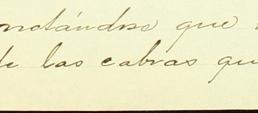 notándose que
de las cabras que